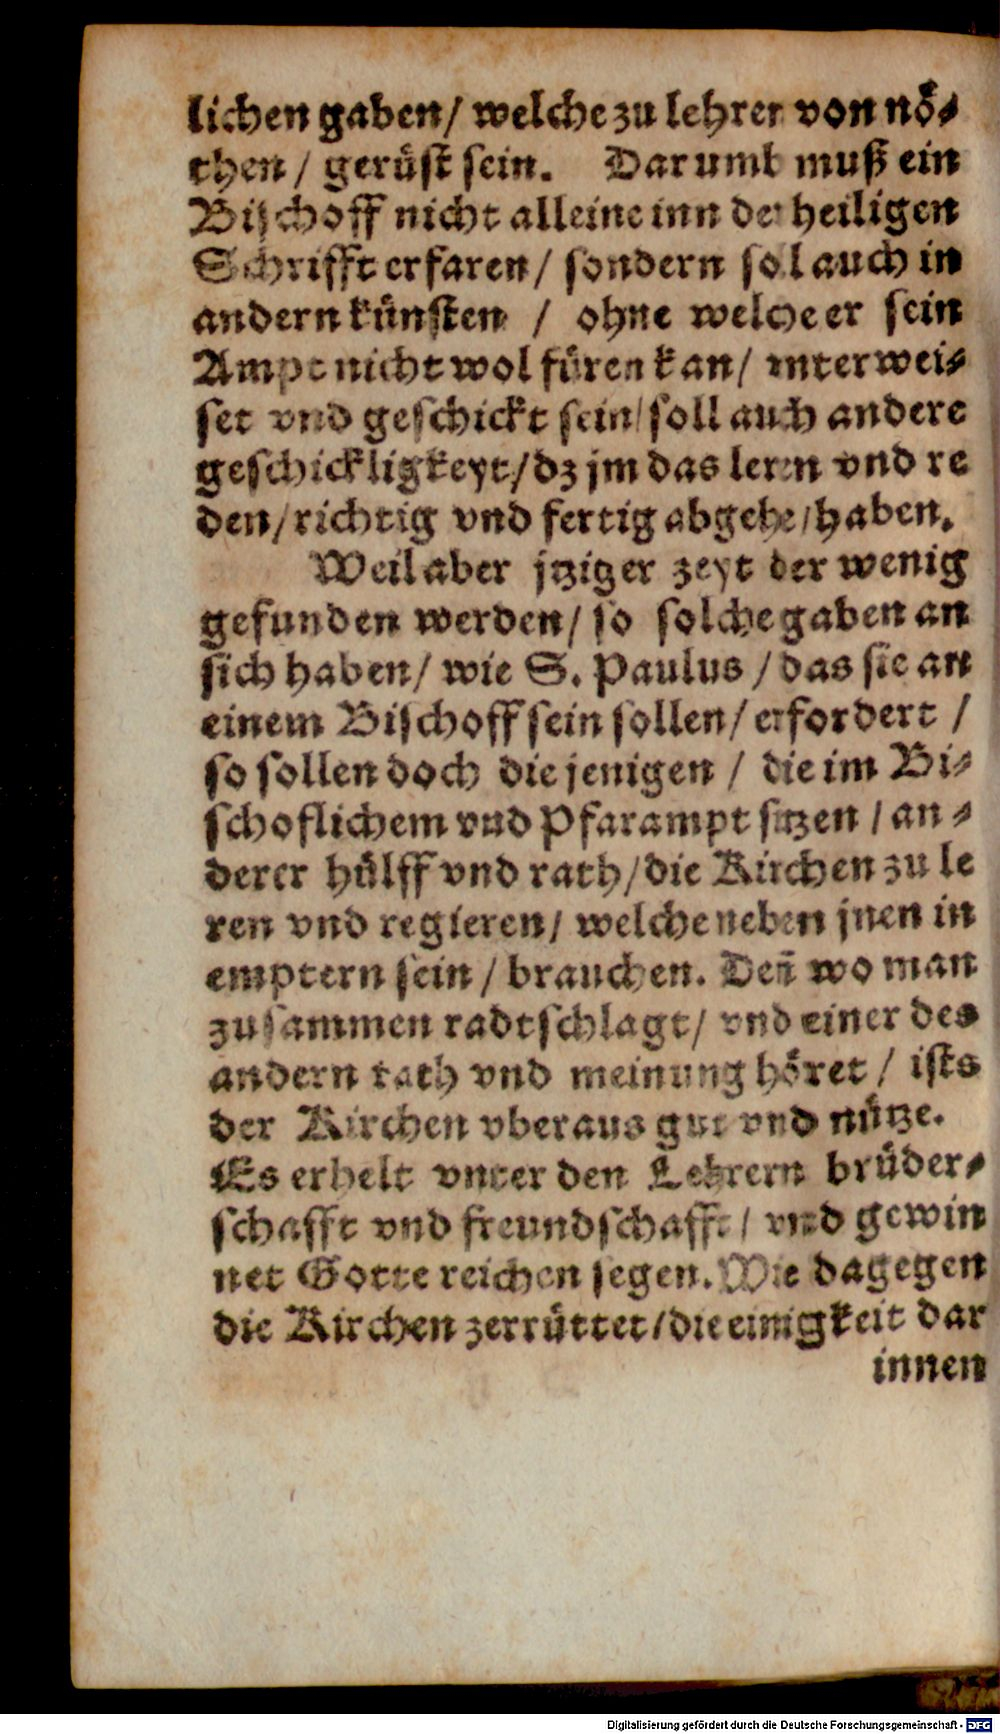 lichen gaben/ welche zu lehren von nö-
then / gerüst sein. Darumb muß ein
Bischoff nicht alleine inn der heiligen
Schrifft erfaren/ sondern soll auch in
andern künsten / ohne welche er sein
Ampt nicht wol füren kan/ vnterwei-
set vnd geschickt sein/ soll auch andere
geschickligkeyt/ dz jm das leren vnd re
den/ richtig vnd fertig abgehe/ haben.
Weil aber jtziger zeyt der wenig
gefunden werden/ so solche gaben an
sich haben/ wie S. Paulus / das sie an
einem Bischoff sein sollen/ erfordert /
so sollen doch die jenigen / die im Bi-
schoflichem vnd Pfarampt sitzen / an-
derer hülff vnd rath/ die Kirchen zu le
ren vnd regieren/ welche neben jnen in
emptern sein / brauchen. Deñ wo man
zusammen radtschlagt/ vnd einer des
andern rath vnd meinung höret / ists
der Kirchen vberaus gut vnd nütze.
Es erhelt vnter den Lehrern brüder-
schafft vnd freundschafft/ vnd gewin
net Gotte reichen segen. Wie dagegen
die Kirchen zerrüttet/ die einigkeit dar
innen
Digitalisierung gefördert durch die Deutsche Forschungsgemeinschaft - DFG